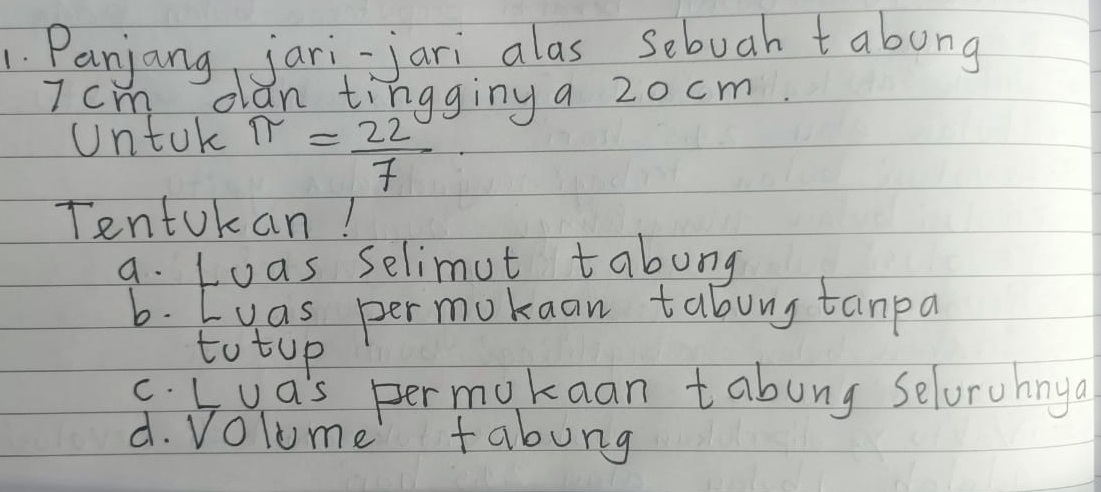 1. Panjang jari-jari alas sebuah tabung
7 cm dan tingginya 20 cm.
Untuk π = 22/7.
Tentukan!
a. Luas selimut tabung
b. Luas permukaan tabung tanpa
tutup
c. Luas permukaan tabung seluruhnya
d. Volume tabung